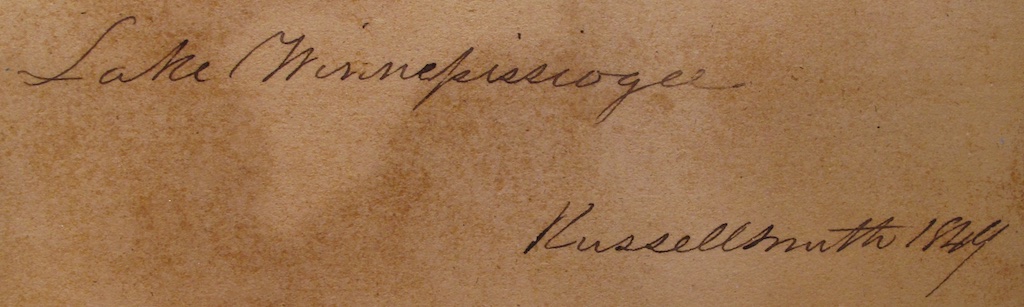 Lake Winnepissiogee
Russellsmith 1849